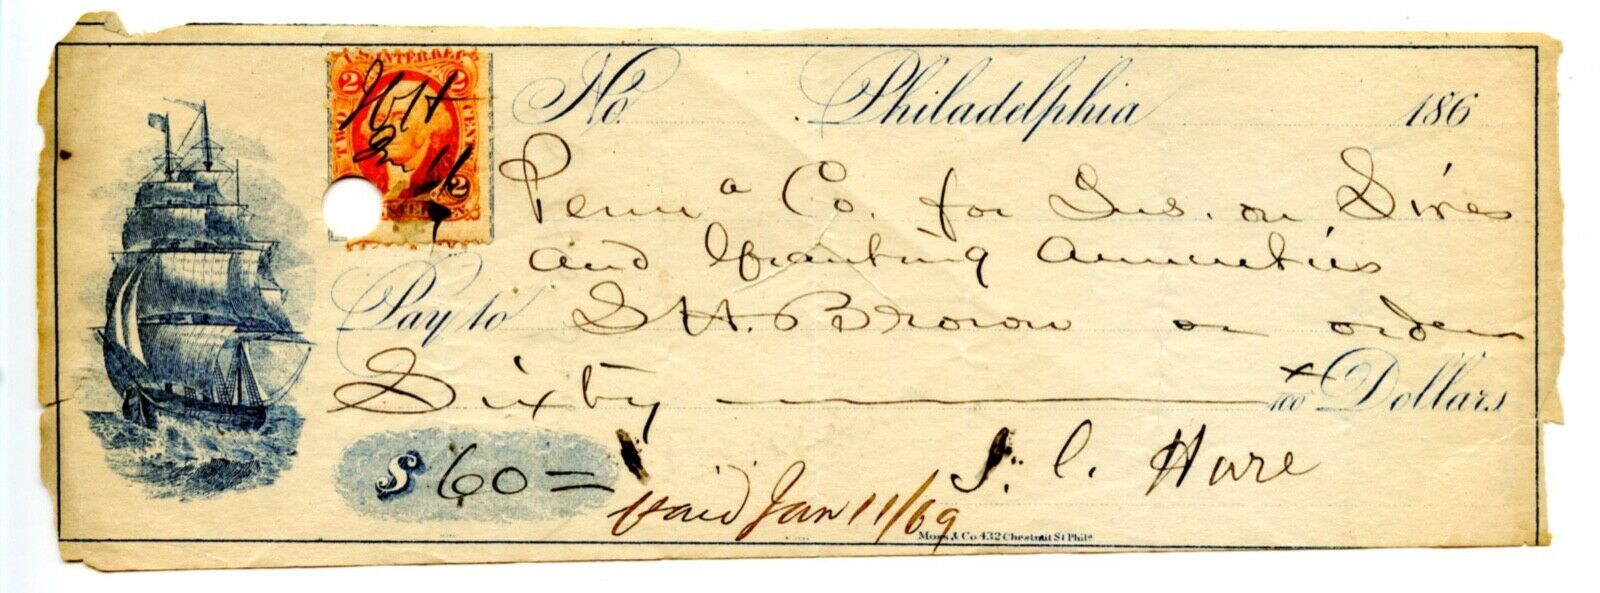 U.S. INTER. REV.
2 2
TWO CENTS
2
No Philadelphia 186
Penna Co. for Ins. on Lives
and Granting Annuities
Pay to S H. Brown or order
Sixty x/100 Dollars
$ 60=
J. C. Hare
Paid Jan 11/69
Moss & Co 432 Chestnut St Phila